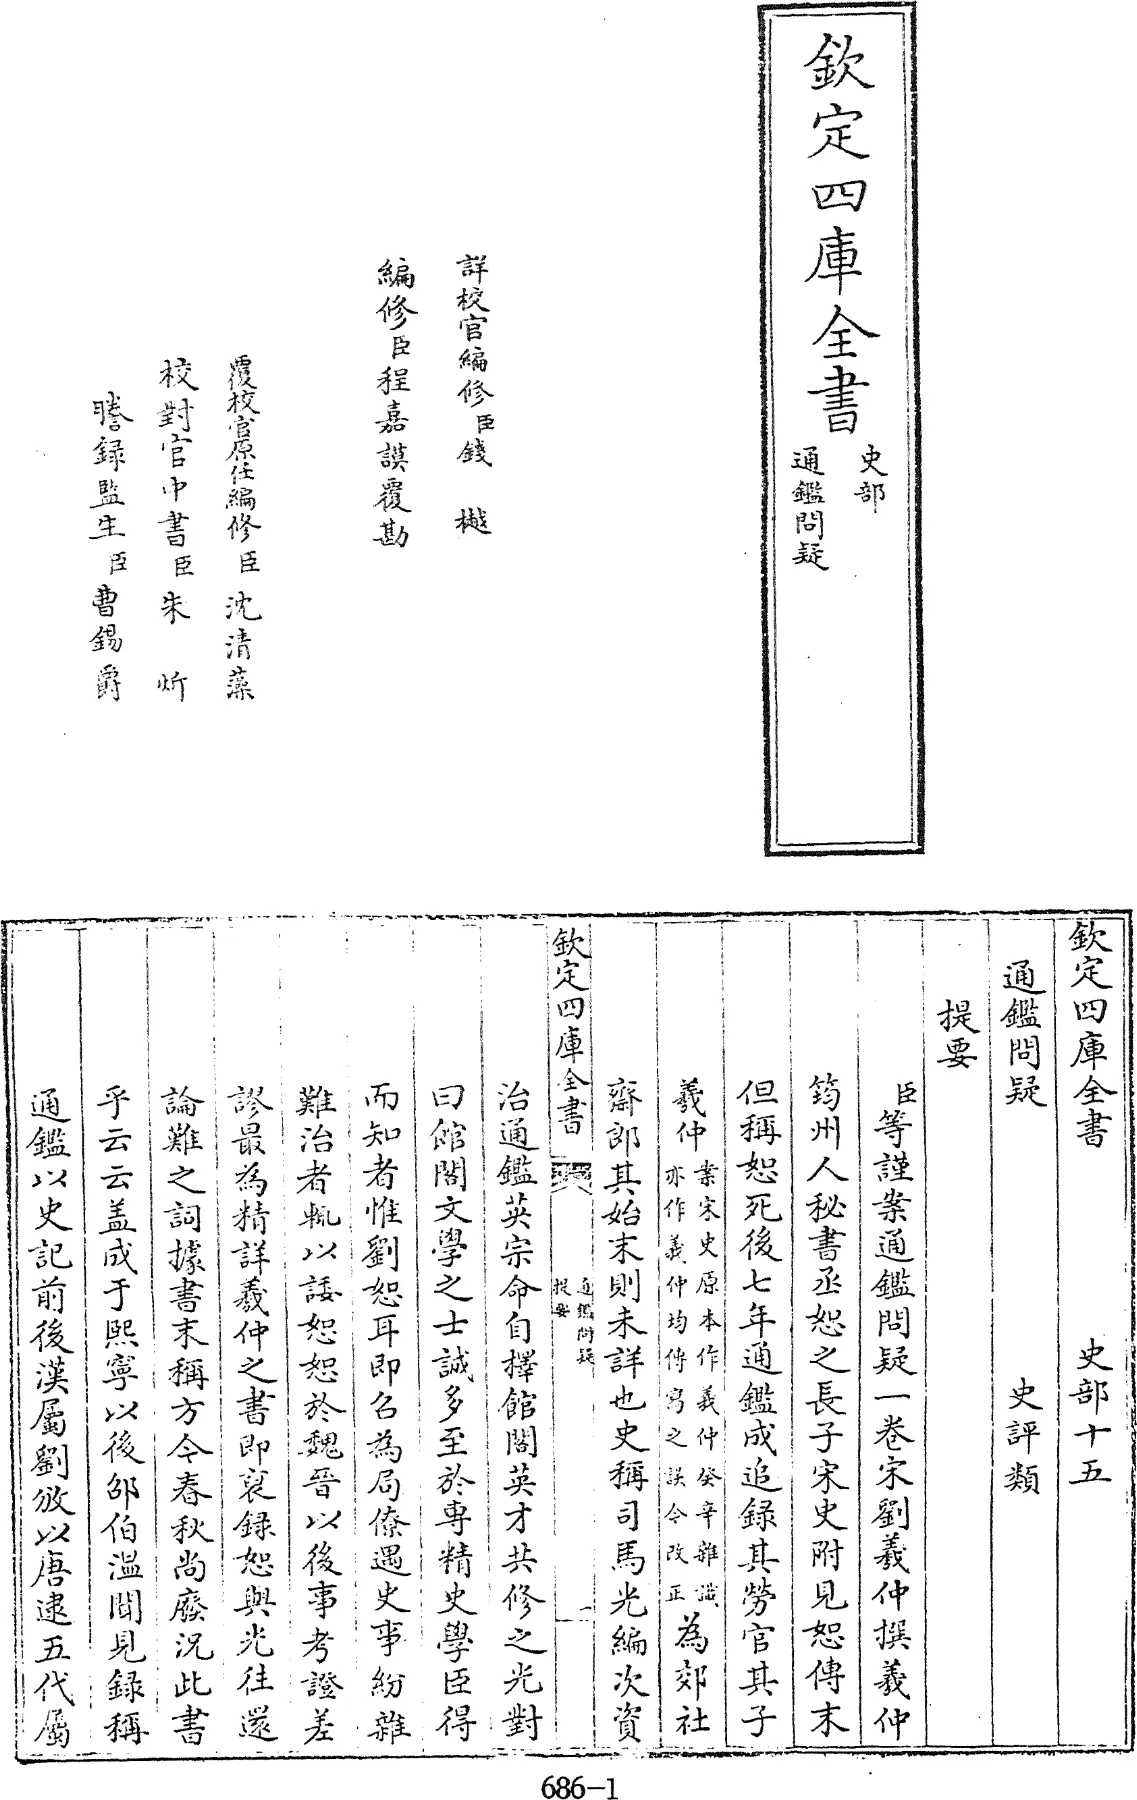 欽定四庫全書
史部
通鑑問疑
詳校官編修臣錢樾
編修臣程嘉謨覆勘
覆校官原任編修臣沈清藻
校對官中書臣朱炘
謄録監生臣曹錫爵
欽定四庫全書 史部十五
通鑑問疑 史評類
提要
臣等謹案通鑑問疑一卷宋劉羲仲撰羲仲
筠州人秘書丞恕之長子宋史附見恕傳末
但稱恕死後七年通鑑成追録其勞官其子
羲仲案宋史原本作義仲癸辛雜識亦作義仲均傳寫之誤今改正為郊社
齋郎其始末則未詳也史稱司馬光編次資
欽定四庫全書
通鑑問疑
提要
一
治通鑑英宗命自擇館閣英才共修之光對
曰館閣文學之士誠多至於專精史學臣得
而知者惟劉恕耳即召為局僚遇史事紛雜
難治者輒以諉恕恕於魏晉以後事考證差
謬最為精詳羲仲之書即裒録恕與光往還
論難之詞據書末稱方今春秋尚廢況此書
乎云云盖成于熙寧以後邵伯溫聞見録稱
通鑑以史記前後漢屬劉攽以唐逮五代屬
686-1